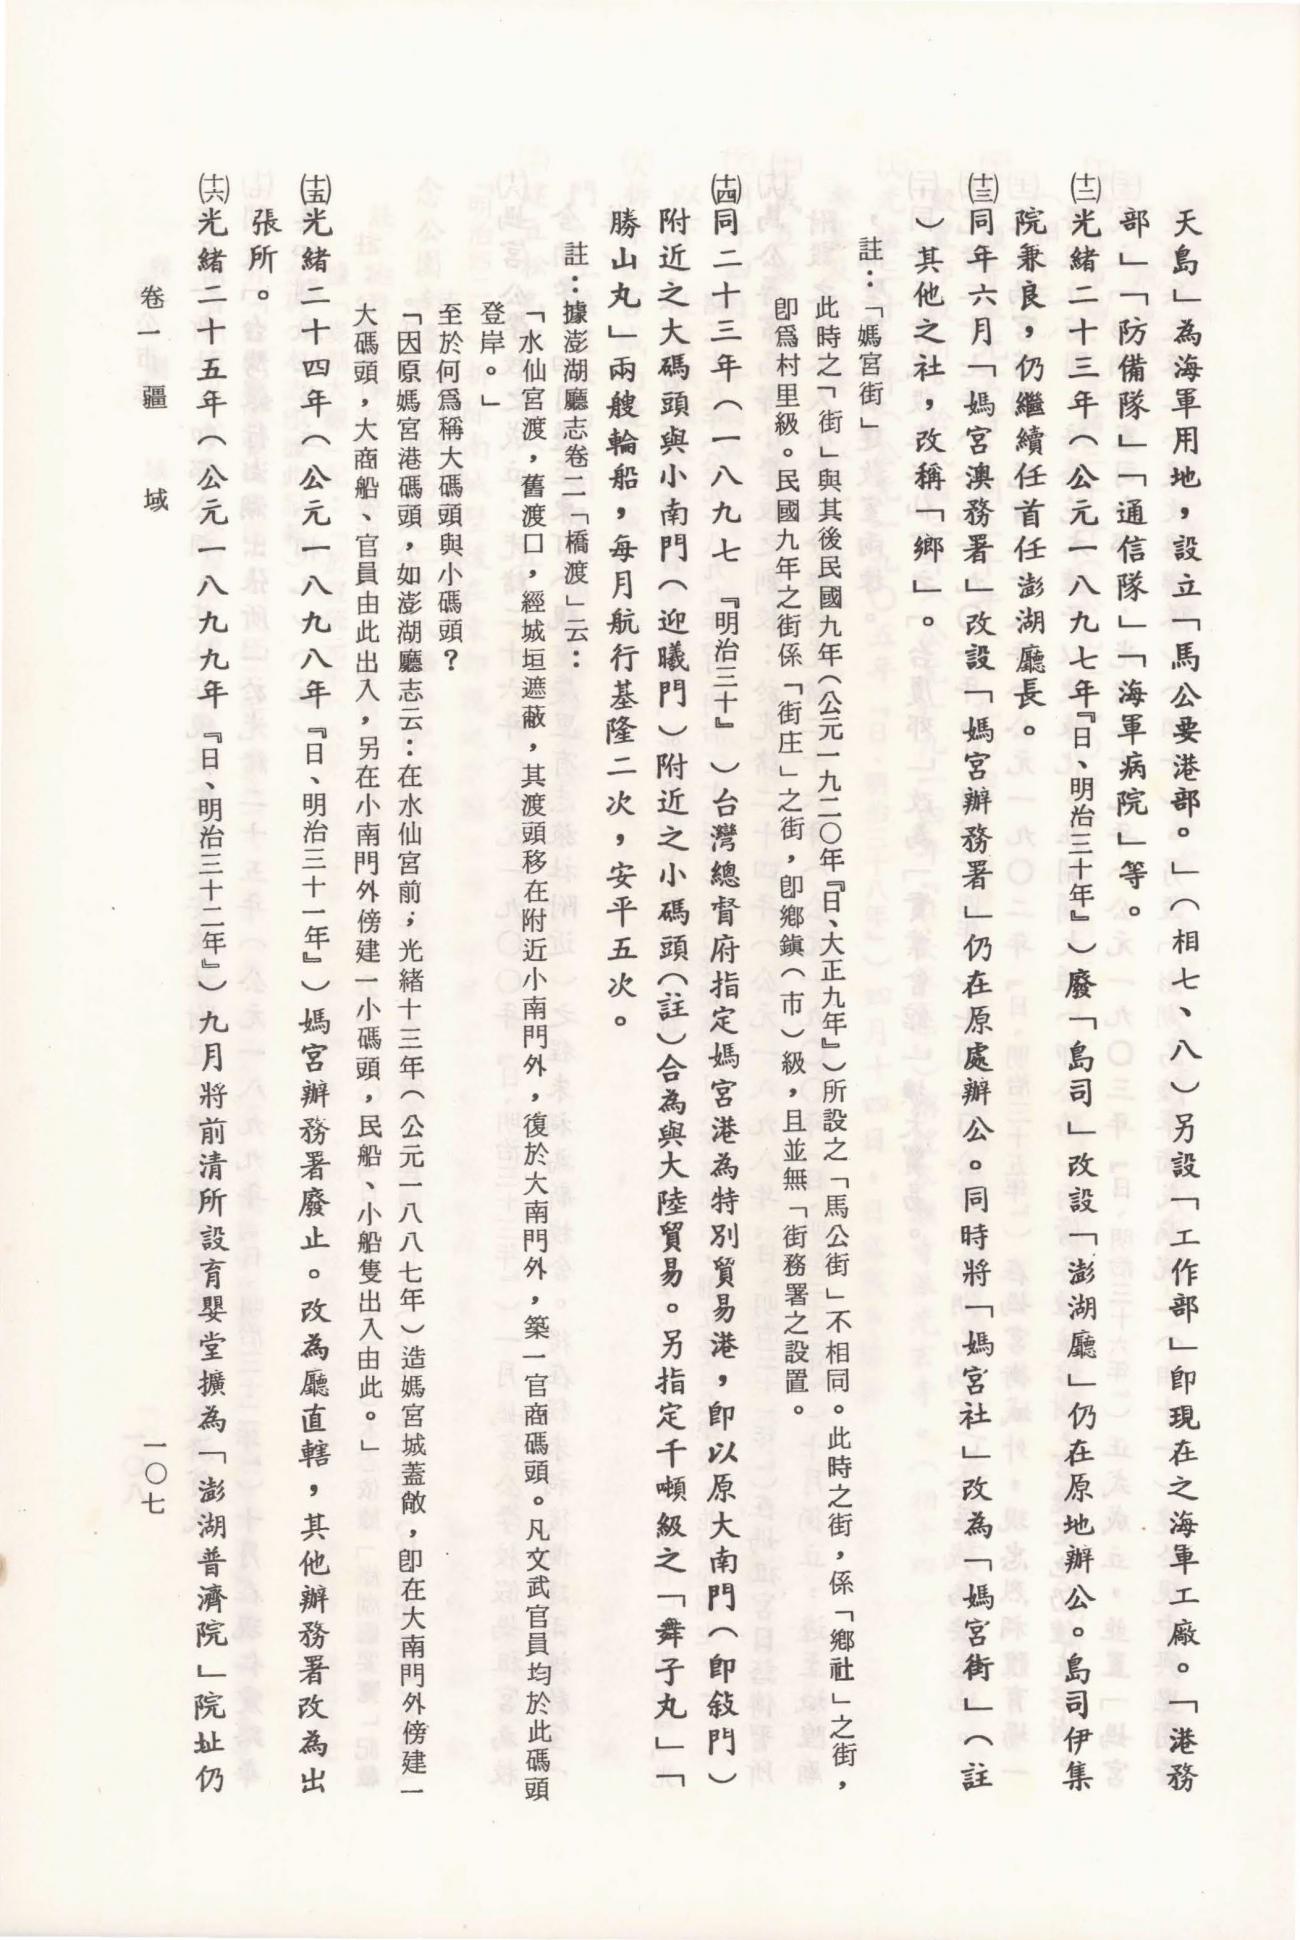 天島」為海軍用地，設立「馬公要港部。」（相七、八）另設「工作部」卽現在之海軍工廠。「港務
部」「防備隊」「通信隊」「海軍病院」等。
㈩㈡光緒二十三年（公元一八九七年『日、明治三十年』）廢「島司」改設「澎湖廳」仍在原地辦公。島司伊集
院兼良，仍繼續任首任澎湖廳長。
㈩㈢同年六月「媽宮澳務署」改設「媽宮辦務署」仍在原處辦公。同時將「媽宮社」改為「媽宮街」（註
）其他之社，改稱「鄉」。
註：「媽宮街」
此時之「街」與其後民國九年（公元一九二〇年『日、大正九年』）所設之「馬公街」不相同。此時之街，係「鄉社」之街，
卽爲村里級。民國九年之街係「街庄」之街，卽鄉鎭（市）級，且並無「街務署之設置。
㈩㈣同二十三年（一八九七『明治三十』）台灣總督府指定媽宮港為特別貿易港，卽以原大南門（卽敍門）
附近之大碼頭與小南門（迎曦門）附近之小碼頭（註）合為與大陸貿易。另指定千噸級之「舞子丸」「
勝山丸」兩艘輪船，每月航行基隆二次，安平五次。
註：據澎湖廳志卷二「橋渡」云：
「水仙宮渡，舊渡口，經城垣遮蔽，其渡頭移在附近小南門外，復於大南門外，築一官商碼頭。凡文武官員均於此碼頭
登岸。」
至於何爲稱大碼頭與小碼頭？
「因原媽宮港碼頭，如澎湖廳志云：在水仙宮前；光緒十三年（公元一八八七年）造媽宮城蓋敵，卽在大南門外傍建一
大碼頭，大商船、官員由此出入，另在小南門外傍建一小碼頭，民船、小船隻出入由此。」
㈩㈤光緒二十四年（公元一八九八年『日、明治三十一年』）媽宮辦務署廢止。改為廳直轄，其他辦務署改為出
張所。
㈩㈥光緒二十五年（公元一八九九年『日、明治三十二年』）九月將前清所設育嬰堂擴為「澎湖普濟院」院址仍
卷一　疆　域
一〇七